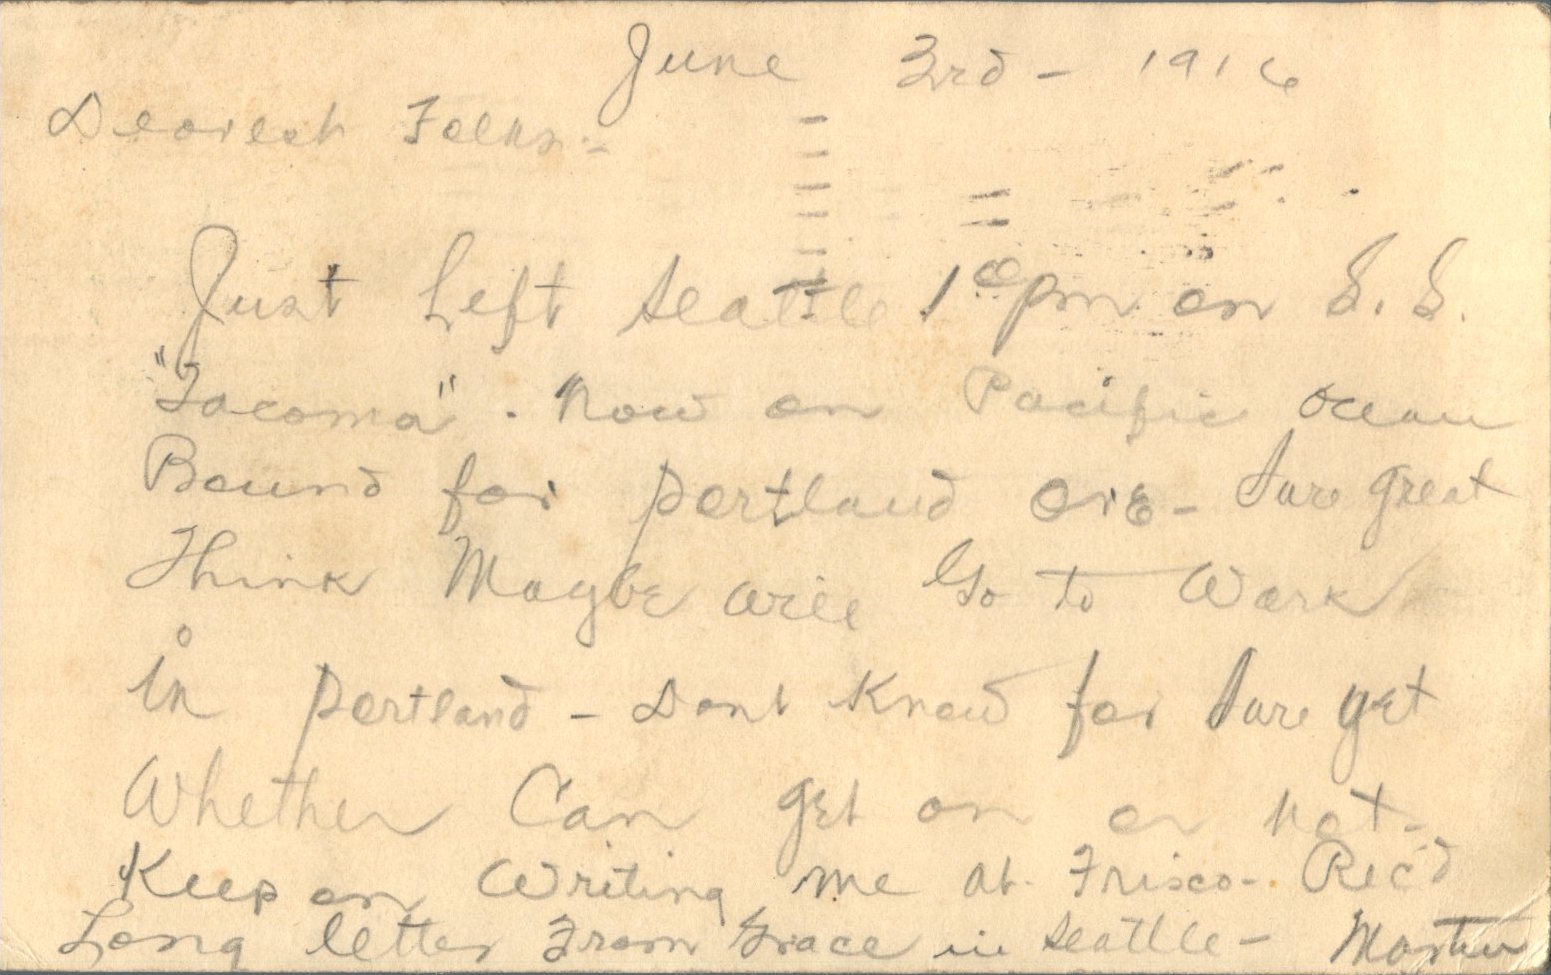 June 3rd - 1916
Dearest Folks:-
Just Left Seattle 1 00 pm on S. S.
"Tacoma". Now on Pacific Ocean
Bound for Portland Ore - Sure great
Think Maybe will Go to Work
in Portland - Dont Know for Sure yet
Whether Can get on or not -
Keep on Writing me at Frisco - Rec'd
Long letter From Grace in Seattle - Martin